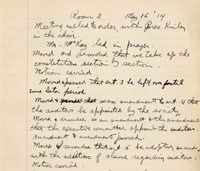 Room 2 May 16 '14
Meeting called to order, with Pres. Kinley
in the chair
Mr. McKay led in prayer
Moved and seconded that we take up the
constitution section by section.
Motion carried
Moved & passed that art. 3 be left over until
some later period
Moved seconded as an amendment to art 4 that
the auditors be appointed by the society
Moved & seconded as an amendment to the amendment
that the executive committee appoint the auditors
amendment to amendment passed.
Moved & seconded that art. 4 be adopted as read,
with the addition of above regarding auditors.
Motion carried